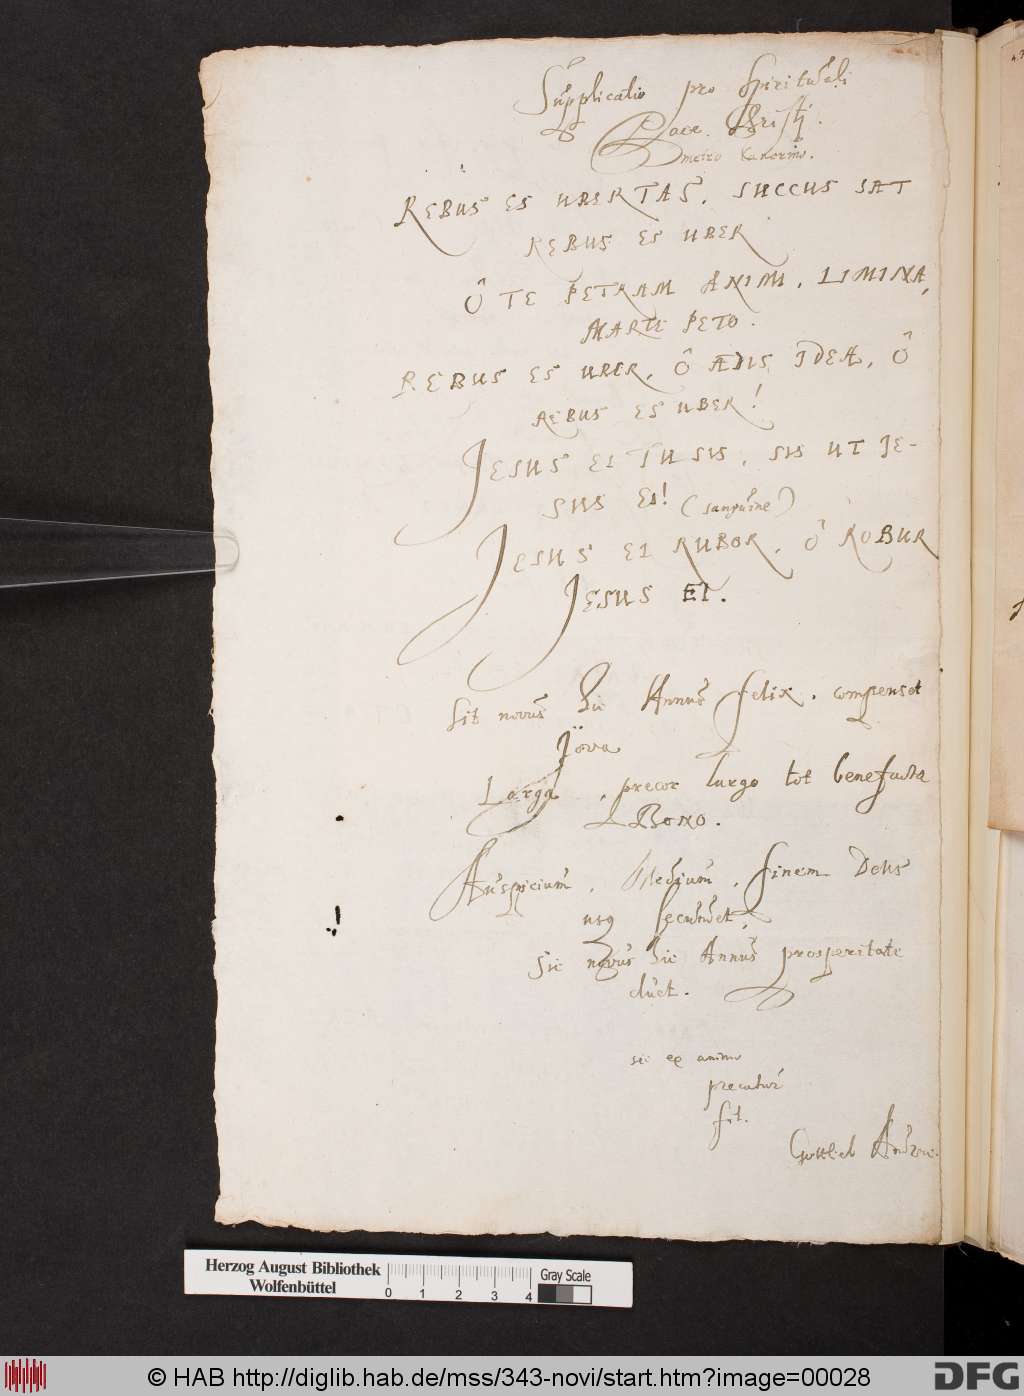 Supplicatio pro Spirituali
Pace Christi.
metro Cancrino.
REBUS ES UBERTAS, SUCCUS SAT
REBUS ES UBER
Ô TE PETRAM ANIMI, LIMINA,
MARTE PETO.
REBUS ES UBER, Ô ÆDIS IDEA, Ô
REBUS ES UBER!
JESUS EI TU SIS, SIS UT JE-
SUS EI! (sanguine)
JESUS EI RUBOR, Ô ROBUR
JESUS EI.
Sit novus hic Annus felix, compenset
Jova
Larga, precor largo tot benefacta
BONO.
Auspicium, Medium, finem DEUS
usq secundet,
Sic novus hic Annus prosperitate
cluet.
sic ex animo
precatur
Gottlieb Andreae.
Herzog August Bibliothek
Wolfenbüttel
0 1 2 3 4
Gray Scale
© HAB http://diglib.hab.de/mss/343-novi/start.htm?image=00028
DFG